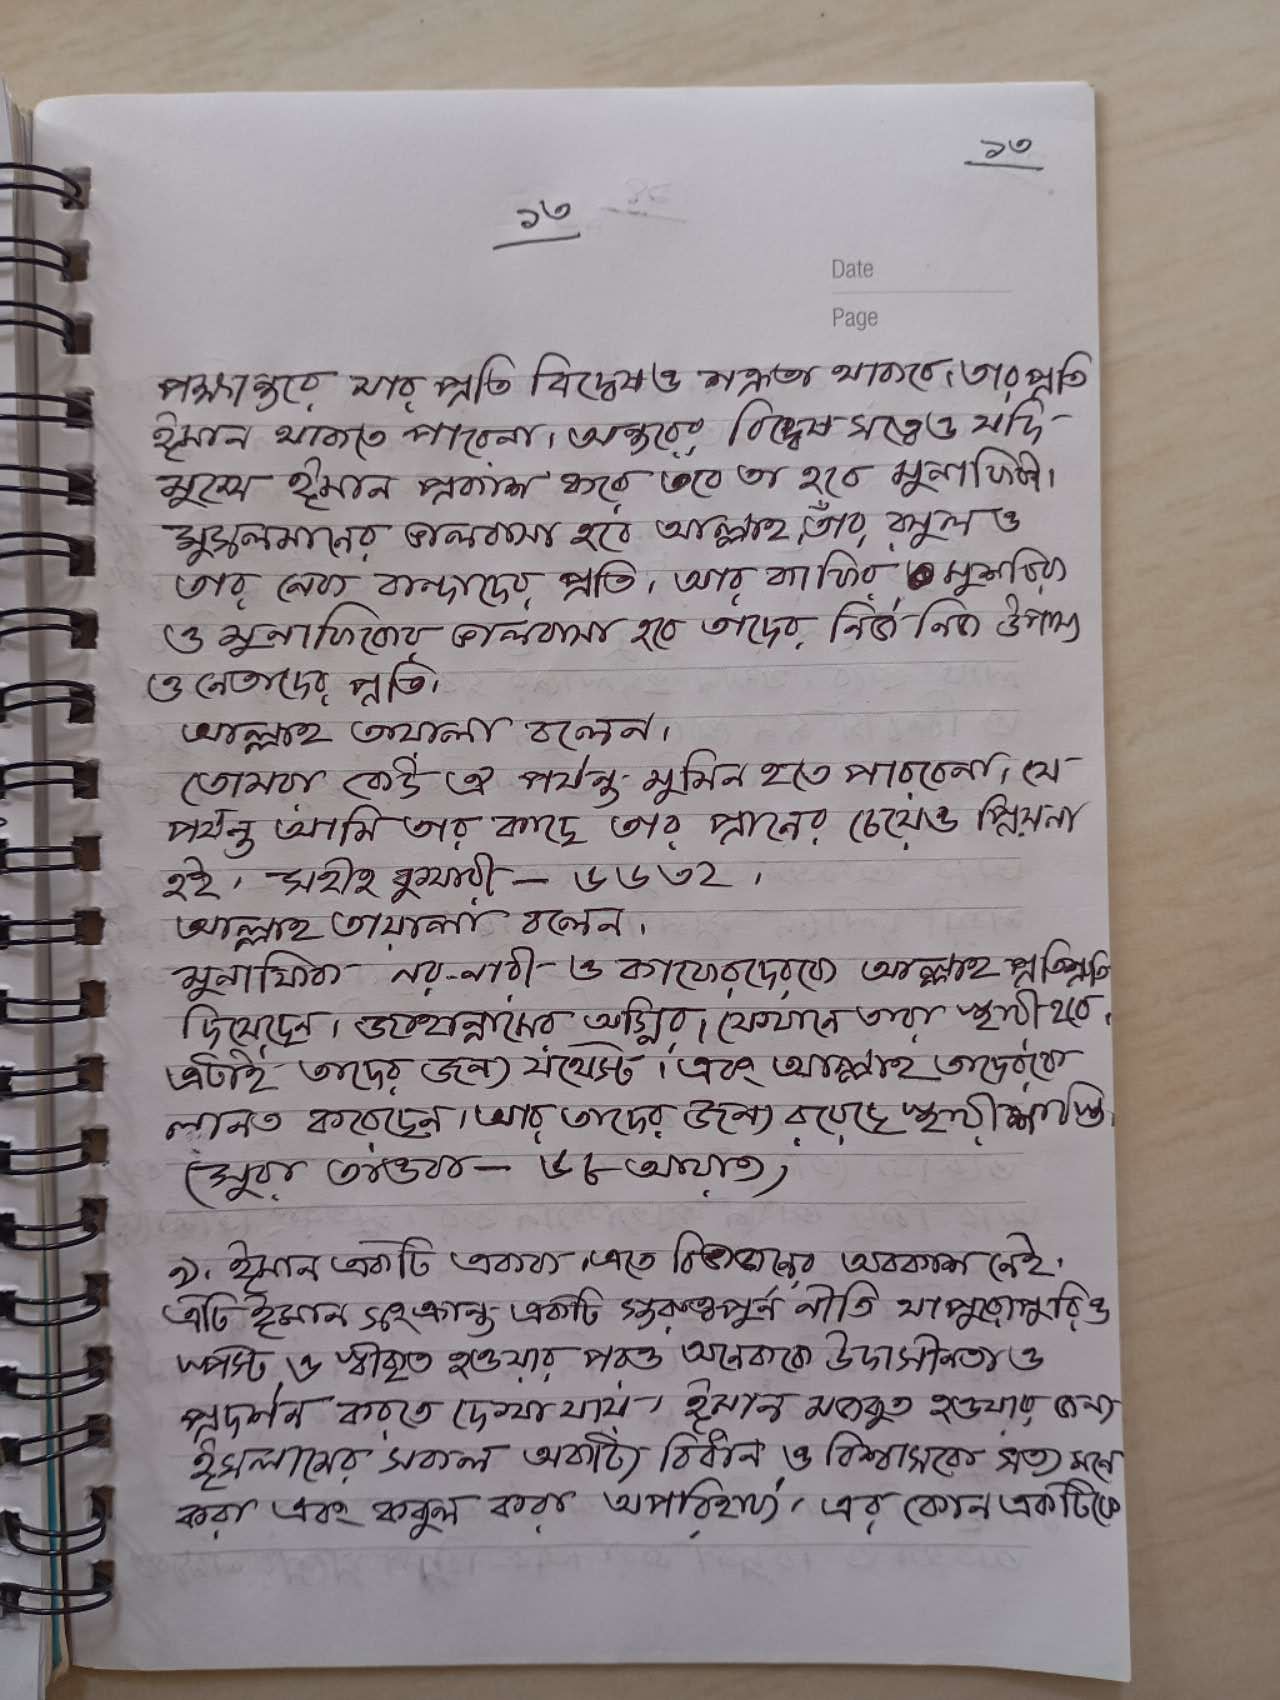 ১৩
১৩
Date
Page
পক্ষান্তরে যার প্রতি বিদ্বেষ ও শত্রুতা থাকবে, তার প্রতি
ঈমান থাকতে পারেনা। অন্তরের বিদ্বেষ সত্বেও যদি
মুখে ঈমান প্রকাশ করে তবে তা হবে মুনাফিকী।
মুসলমানের ভালবাসা হবে আল্লাহ, তাঁর রসুল ও
তার নেক বান্দাদের প্রতি। আর কাফির, মুশরিক
ও মুনাফিকের ভালবাসা হবে তাদের নিজ নিজ উপাস্য
ও নেতাদের প্রতি।
আল্লাহ তায়ালা বলেন।
তোমরা কেউ ঐ পর্যন্ত মুমিন হতে পারবেনা। যে
পর্যন্ত আমি তার কাছে তার প্রানের চেয়েও প্রিয়না
হই। সহীহ বুখারী – ৬৬৩২।
আল্লাহ তায়ালা বলেন।
মুনাফিক নর-নারী ও কাফেরদেরকে আল্লাহ প্রতিশ্রুতি
দিয়েছেন। জাহান্নামের অগ্নির, যেখানে তারা স্থায়ী হবে।
এটাই তাদের জন্য যথেস্ট। এবং আল্লাহ তাদেরকে
লানত করেছেন। আর তাদের জন্য রয়েছে স্থায়ী শাস্তি।
(সুরা তাওবা – ৬৮ আয়াত)
৯। ঈমান একটি একক। এতে বিভাজনের অবকাশ নেই।
এটি ঈমান সংক্রান্ত একটি গুরুত্বপূর্ন নীতি যা পুরোপুরি ও
স্পস্ট ও স্বীকৃত হওয়ার পরও অনেককে উদাসীনতা ও
প্রদর্শন করতে দেখা যায়। ঈমান মজবুত হওয়ার জন্য
ইসলামের সকল অকাট্য বিধান ও বিশ্বাসকে সত্য মনে
করা এবং কবুল করা অপরিহার্য। এর কোন একটিকে